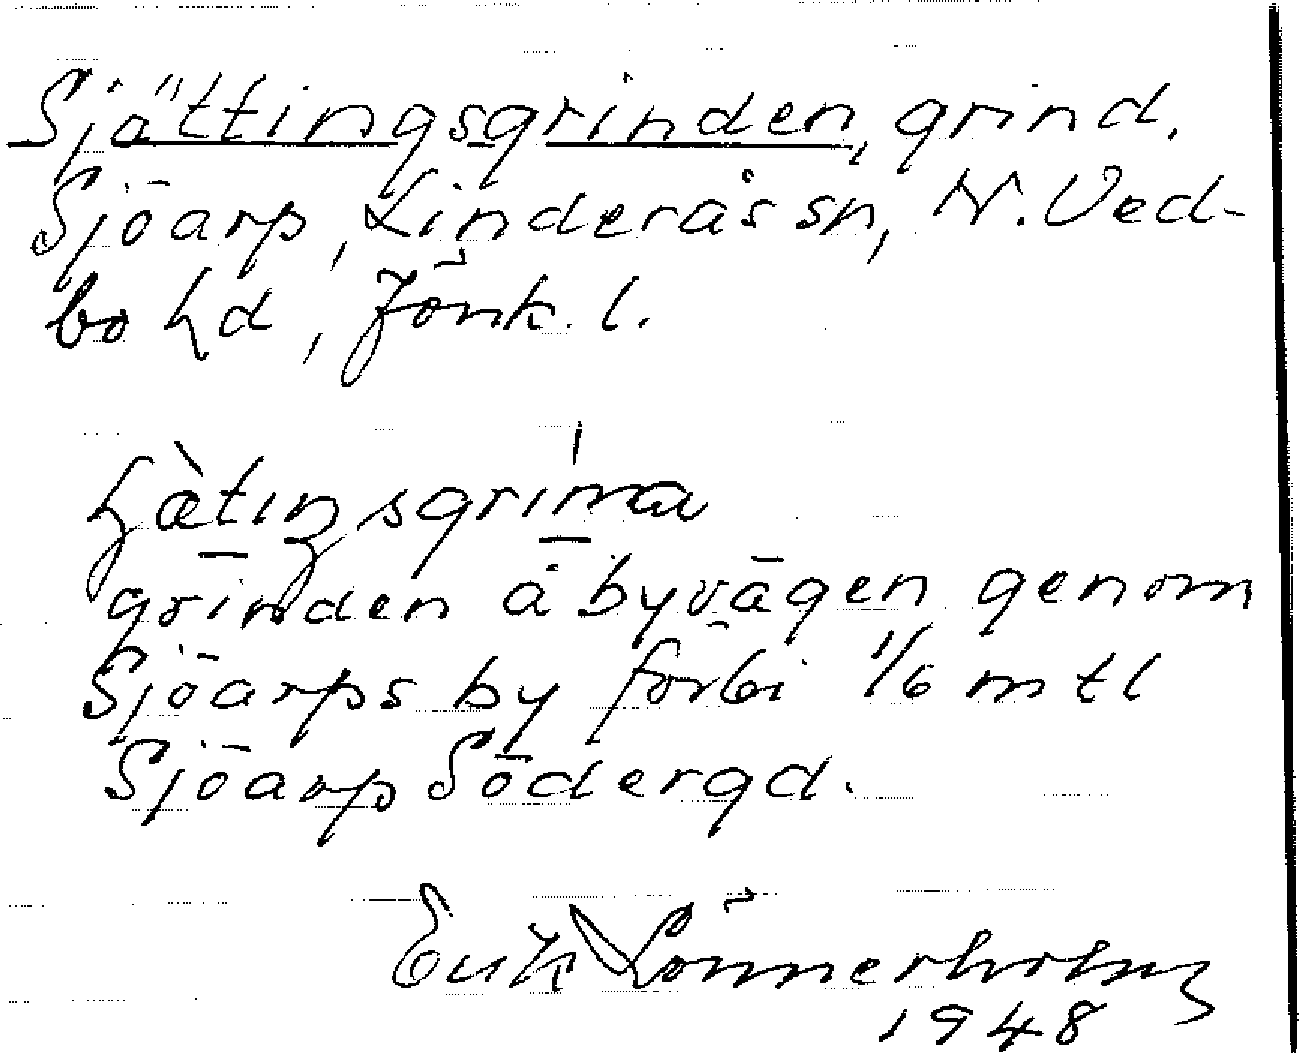 Sjättingsgrinden, grind.
Sjöarp, Linderås sn, N. Ved-
bo hd, Jönk. l.
grinden å byvägen genom
Sjöarps by förbi 1/6 mtl
Sjöarp Södergd.
Erik Lönnerholm
1948